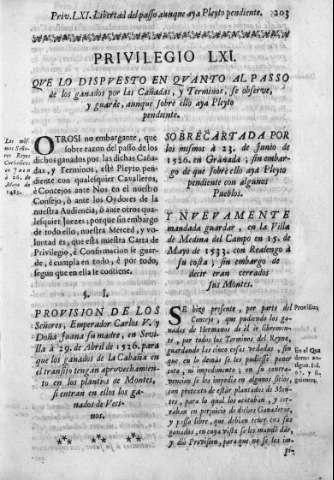 Priv. LXI. Libertad del passo aunque aya Pleyto pendiente. 203
PRIVILEGIO LXI.
QUE LO DISPUESTO EN QVANTO AL PASSO
de los ganados por las Cañadas, y Terminos, se observe,
y guarde, aunque sobre ello aya Pleyto
pendiente.
Los mismos Señores Reyes
OTROSI no embargante, que
sobre razon del passo de los
dichos ganados por las dichas Cañadas,
y Terminos, esté Pleyto pendiente
con qualesquier Cavalleros,
é Concejos ante Nos en el nuestro
Consejo, ò ante los Oydores de la
nuestra Audiencia, ò ante otros qualesquier
Juezes; porque sin embargo
de todo ello, nuestra Merced, y voluntad
es, que esta nuestra Carta de
Privilegio, é Confirmacion se guarde,
é cumpla en todo, é por todo,
segun que en ella se contiene.
§. I.
PROVISION DE LOS
Señores, Emperador Carlos V. y
Doña Juana su madre, en Sevilla
à 29. de Abril de 1526. para
que los ganados de la Cabaña en
el transito tengan aprovechamiento
en los plantios de Montes,
si entran en ellos los ganados
de Vecinos.
*** ***
SOBRECARTADA POR
los mismos à 23. de Junio de
1526. en Granada; sin embargo
de que sobre ello aya Pleyto
pendiente con algunos
Pueblos.
Y NUEVAMENTE
mandada guardar, en la Villa
de Medina del Campo en 15. de
Mayo de 1533. con Realengo à
su costa; sin embargo de
decir eran cerrados
sus Montes.
SE hizo presente, por parte del
Concejo, que pudiendo los ganados
de Hermanos de èl ir libremente,
por todos los Terminos del Reyno,
guardando las cinco cosas vedadas, sin
que en lo demàs se les pudiesse poner
coto, ni impedimento; en su contravencion
se les impedia en algunos sitios,
con pretexto de estàr plantados de Montes,
para lo qual los acotaban, y cerraban
en perjuicio de dichos Ganaderos,
y passo libre, que debian tener con sus
ganados, en cuya vista se les mandò dàr,
y diò Provision, para que no se les im-
Provision,